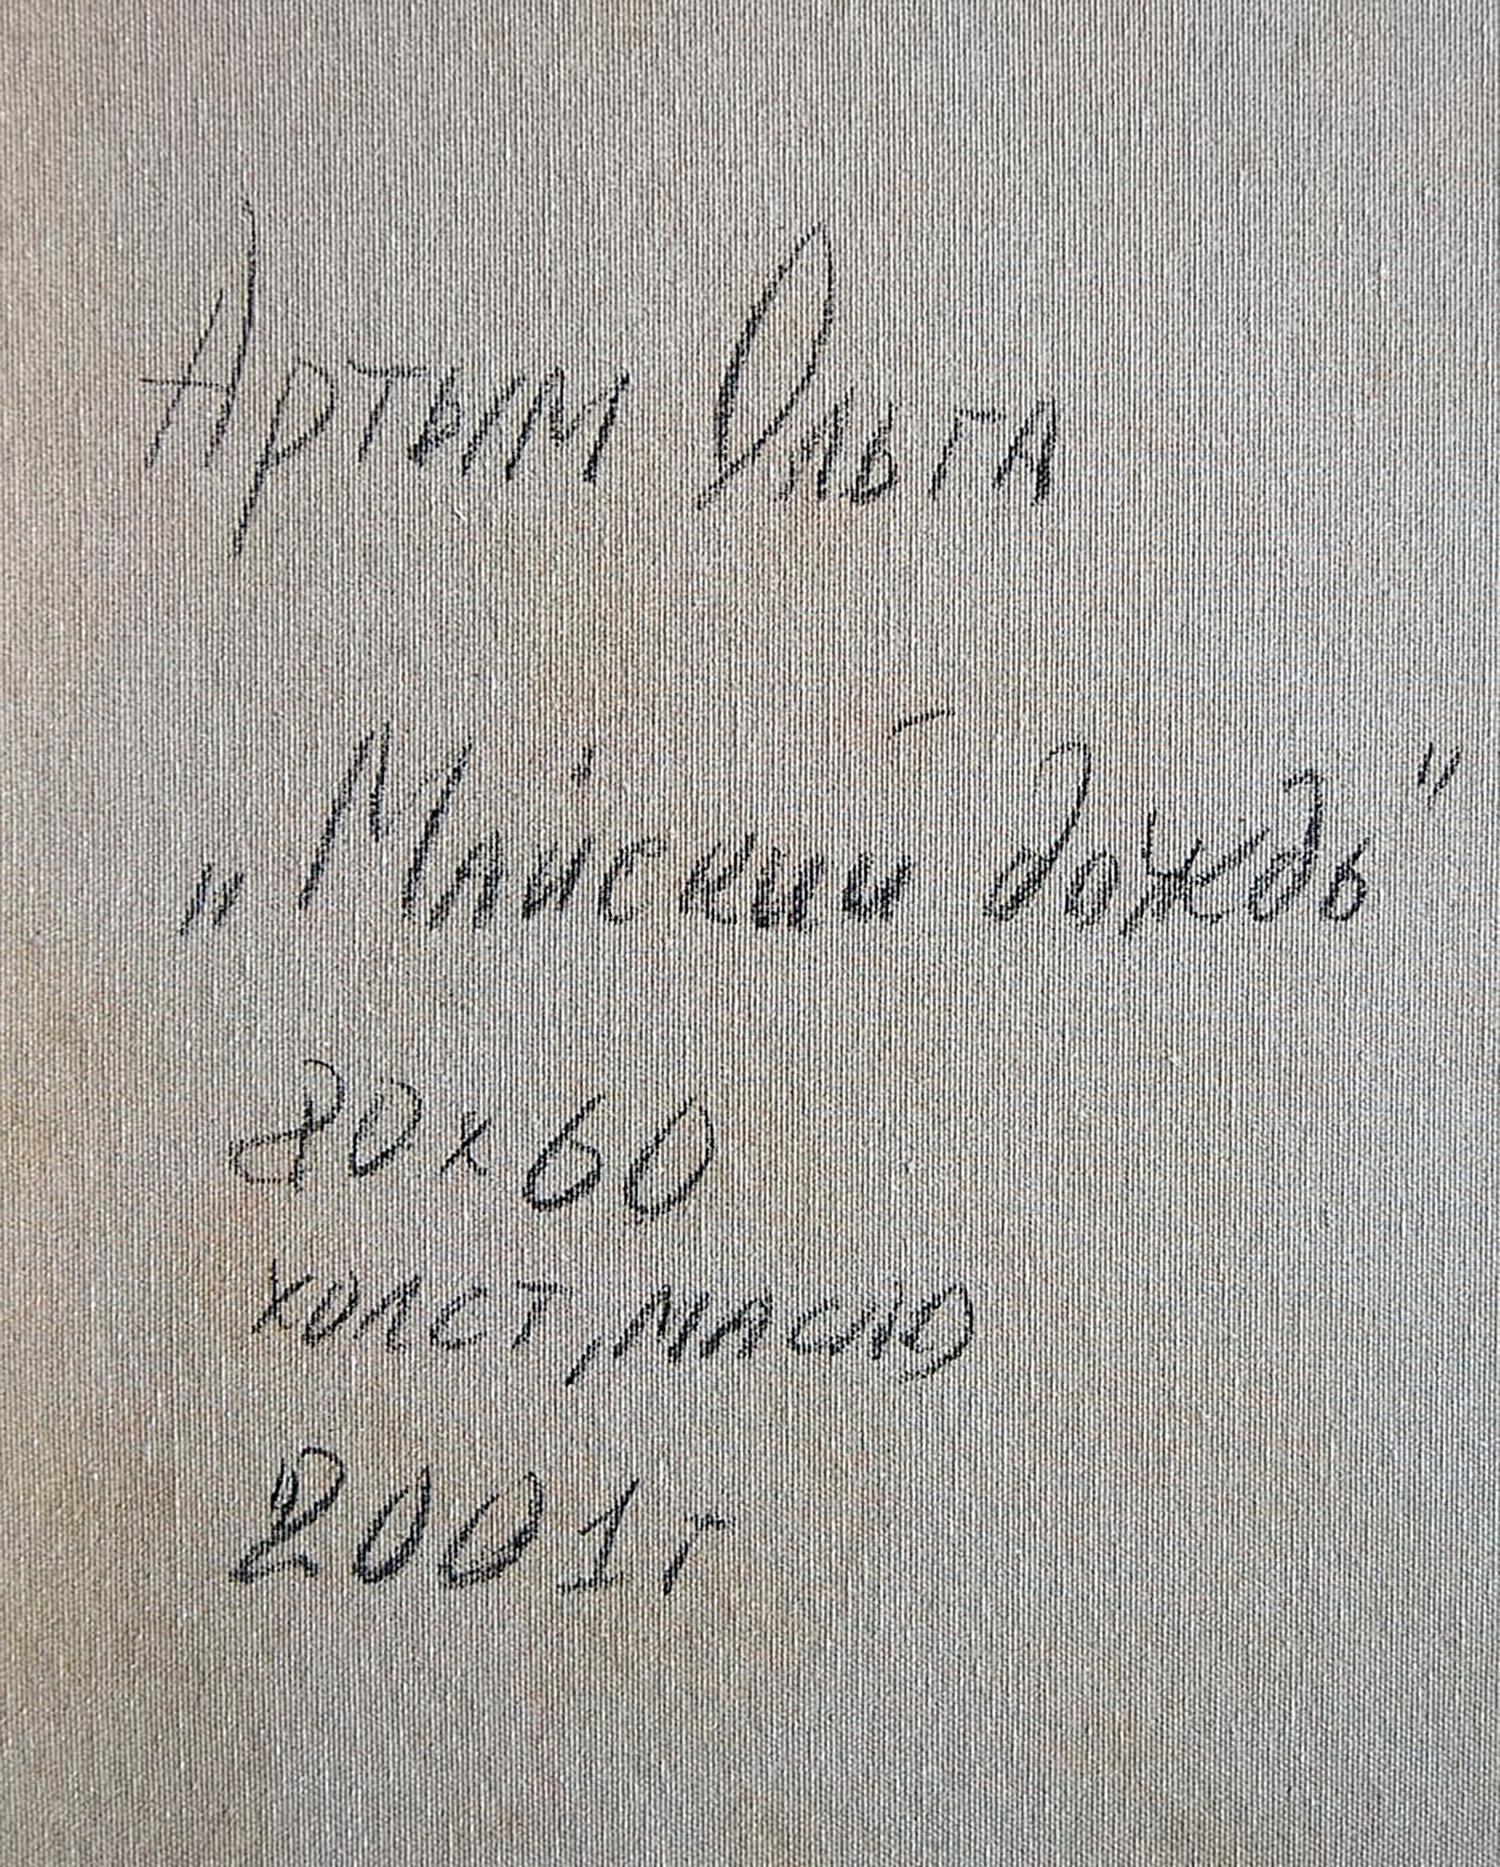 Артым Ольга
„Майский дождь"
80x60
холст, масло
2001г